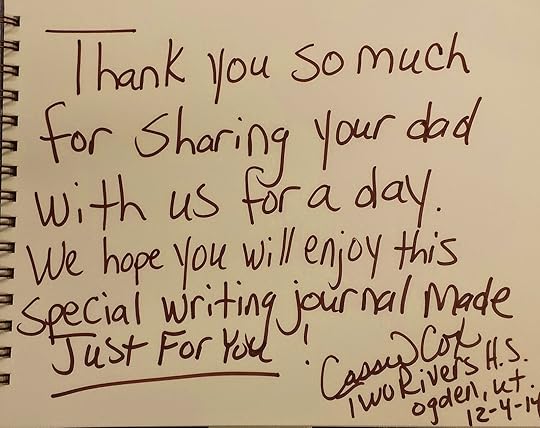 Thank you so much
for sharing your dad
with us for a day.
We hope you will enjoy this
special writing journal Made
Just For You!
Cassie Cox
Two Rivers H.S.
Ogden, Ut.
12-4-14